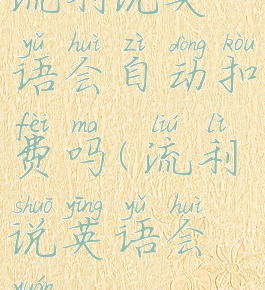 流利说英
yǔ huì zì dòng kòu
语会自动扣
fèi ma liú lì
费吗(流利
shuō yīng yǔ huì
说英语会
yuán